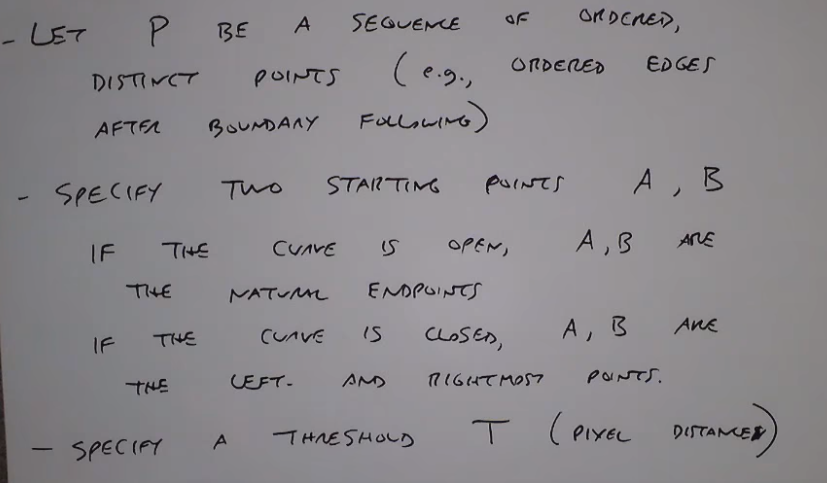 - LET P BE A SEQUENCE OF ORDERED,
DISTINCT POINTS (e.g., ORDERED EDGES
AFTER BOUNDARY FOLLOWING)
- SPECIFY TWO STARTING POINTS A, B
IF THE CURVE IS OPEN, A, B ARE
THE NATURAL ENDPOINTS
IF THE CURVE IS CLOSED, A, B ARE
THE LEFT- AND RIGHTMOST POINTS.
- SPECIFY A THRESHOLD T (PIXEL DISTANCE)